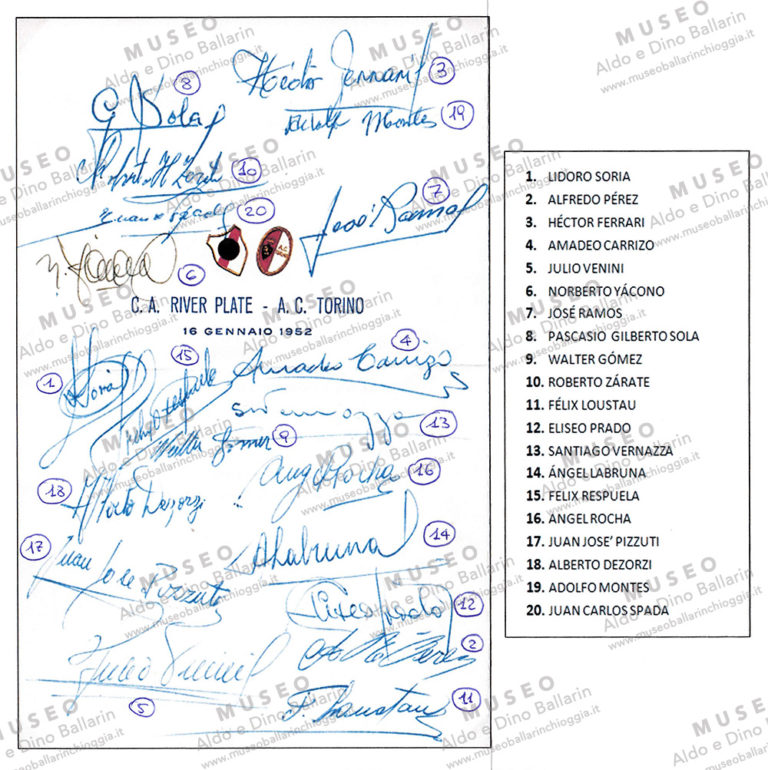 8
Héctor Ferrari
3
G Sola
Adolfo Montes
19
Roberto H Zárate
10
7
José Ramos
20
6
C. A. RIVER PLATE - A. C. TORINO
16 GENNAIO 1952
4
15
Amadeo Carrizo
1
Soria
13
Walter Gomez
9
Angel Rocha
16
18
Alberto Dezorzi
14
17
ALabruna
Juan José Pizzuti
Eliseo Prado
12
2
Julio Venini
11
5
F. Loustau
1. LIDORO SORIA
2. ALFREDO PÉREZ
3. HÉCTOR FERRARI
4. AMADEO CARRIZO
5. JULIO VENINI
6. NORBERTO YÁCONO
7. JOSÉ RAMOS
8. PASCASIO GILBERTO SOLA
9. WALTER GÓMEZ
10. ROBERTO ZÁRATE
11. FÉLIX LOUSTAU
12. ELISEO PRADO
13. SANTIAGO VERNAZZA
14. ÁNGEL LABRUNA
15. FELIX RESPUELA
16. ANGEL ROCHA
17. JUAN JOSE' PIZZUTI
18. ALBERTO DEZORZI
19. ADOLFO MONTES
20. JUAN CARLOS SPADA
MUSEO
Aldo e Dino Ballarin
www.museoballarinchioggia.it